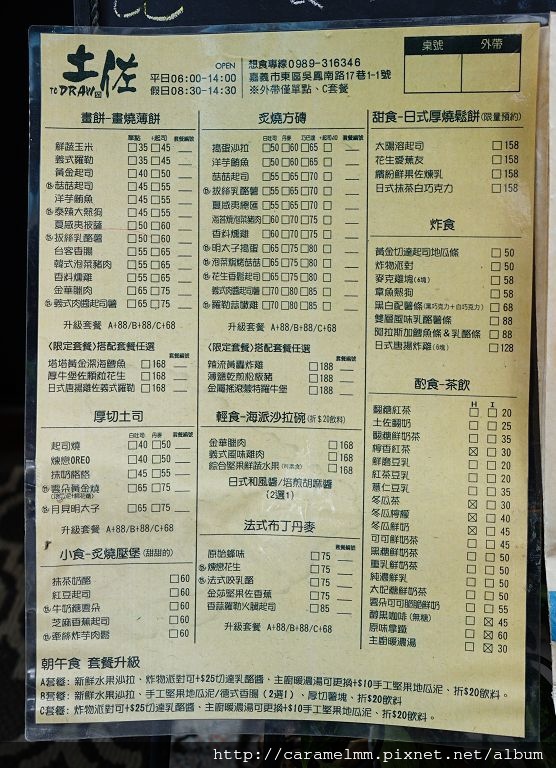 土佐
TO DRAW
OPEN
平日06:00-14:00
假日08:30-14:30
想食專線0989-316346
嘉義市東區吳鳳南路17巷1-1號
※外帶僅單點、C套餐
桌號 外帶
畫餅-畫燒薄餅
單點 +起司 套餐編號
鮮蔬玉米 □35 □45
義式羅勒 □35 □45
黃金起司 □40 □50
菇菇起司 □45 □55
洋芋鮪魚 □45 □55
泰辣大熱狗 □45 □55
夏威夷披薩 □50 □60
扳絲乳酪薯 □50 □60
台客香腸 □55 □65
韓式泡菜豬肉 □55 □65
香料燻雞 □55 □65
金華臘肉 □55 □65
義式肉醬起司薯 □65 □75
升級套餐 A+88/B+88/C+68
<限定套餐>搭配套餐任選
套餐編號
塔塔黃金深海鱈魚 □168
厚牛堡佐顆粒花生 □168
日式唐揚雞佐義式羅勒 □168
厚切土司
白吐司 丹麥 套餐編號
起司燒 □40 □50
煉戀OREO □40 □50
抹奶格格 □45 □55
雲朵黃金燒 □65 □75
月見明太子 □65 □75
升級套餐 A+88/B+88/C+68
小食-炙燒壓堡 (甜甜的)
抹茶奶酪 □60
紅豆起司 □60
牛奶糖雲朵 □60
芝麻香蕉起司 □60
牽絲炸芋肉鬆 □60
炙燒方磚
白吐司 丹麥 巧巴達 +起司+10 套餐編號
搗蛋沙拉 □50 □60 □65
洋芋鮪魚 □50 □60 □65
菇菇起司 □55 □65 □70
扳絲乳酪薯 □55 □65 □70
夏威夷總匯 □55 □65 □70
海苔燒泡菜豬肉 □60 □70 □75
香料燻雞 □60 □70 □75
明太子搗蛋 □65 □75 □80
泡菜燒烤菇菇 □65 □75 □80
花生香鬆起司 □65 □75 □80
義式肉醬起司薯 □70 □80 □85
羅勒蒜嫩雞 □70 □80 □85
升級套餐 A+88/B+88/C+68
<限定套餐>搭配套餐任選
套餐編號
辣流黃轟炸雞 □188
薄鹽乾煎松板豬 □188
金屬搖滾蘭特羅牛堡 □188
輕食-海派沙拉碗(折$20飲料)
金華臘肉 □168
義式風味雞肉 □168
綜合堅果鮮蔬水果(可素食) □168
日式和風醬/焙煎胡麻醬
(2選1)
法式布丁丹麥
套餐編號
原始蜂味 □75
煉戀花生 □75
法式咬乳酪 □75
金莎堅果佐香蕉 □75
香蒜羅勒火腿起司 □85
升級套餐 A+88/B+88/C+68
甜食-日式厚燒鬆餅(限量預約)
太陽溶起司 □158
花生愛蕉友 □158
繽紛鮮果佐煉乳 □158
日式抹茶白巧克力 □158
炸食
黃金切達起司地瓜條 □50
炸物派對 □50
麥克雞塊(6塊) □58
章魚熱狗 □58
黑白配薯條(黑巧克力+白巧克力) □68
雙層風味乳酪薯條 □88
阿拉斯加鱈魚條&乳酪條 □88
日式唐揚炸雞(6塊) □128
酌食-茶飲
H I
翡糖紅茶 □ □20
土佐翻奶 □ □25
翡糖鮮奶 □ □35
檸香紅茶 ☒ □30
鮮磨豆乳 □ □20
紅茶豆乳 □ □30
薏仁豆乳 □ □35
冬瓜茶 ☒ □30
冬瓜檸檬 ☒ □40
冬瓜鮮奶 ☒ □45
可可鮮奶茶 □ □45
黑糖鮮奶茶 □ □50
重乳鮮奶茶 □ □50
純濃鮮乳 □ □50
太妃糖鮮奶茶 □ □50
雲朵可可脆脆鮮奶 □ □55
醇黑咖啡(無糖) □ ☒45
原味拿鐵 □ ☒60
主廚暖濃湯 □ ☒30
朝午食 套餐升級
A套餐: 新鮮水果沙拉、炸物派對可+$25切達乳酪醬、主廚暖濃湯可更換+$10手工堅果地瓜泥、折$20飲料。
B套餐: 新鮮水果沙拉、手工堅果地瓜泥/德式香腸(2選1)、厚切薯塊、折$20飲料。
C套餐: 炸物派對可+$25切達乳酪醬、主廚暖濃湯可更換+$10手工堅果地瓜泥、折$20飲料。
http://caramelmm.pixnet.net/album